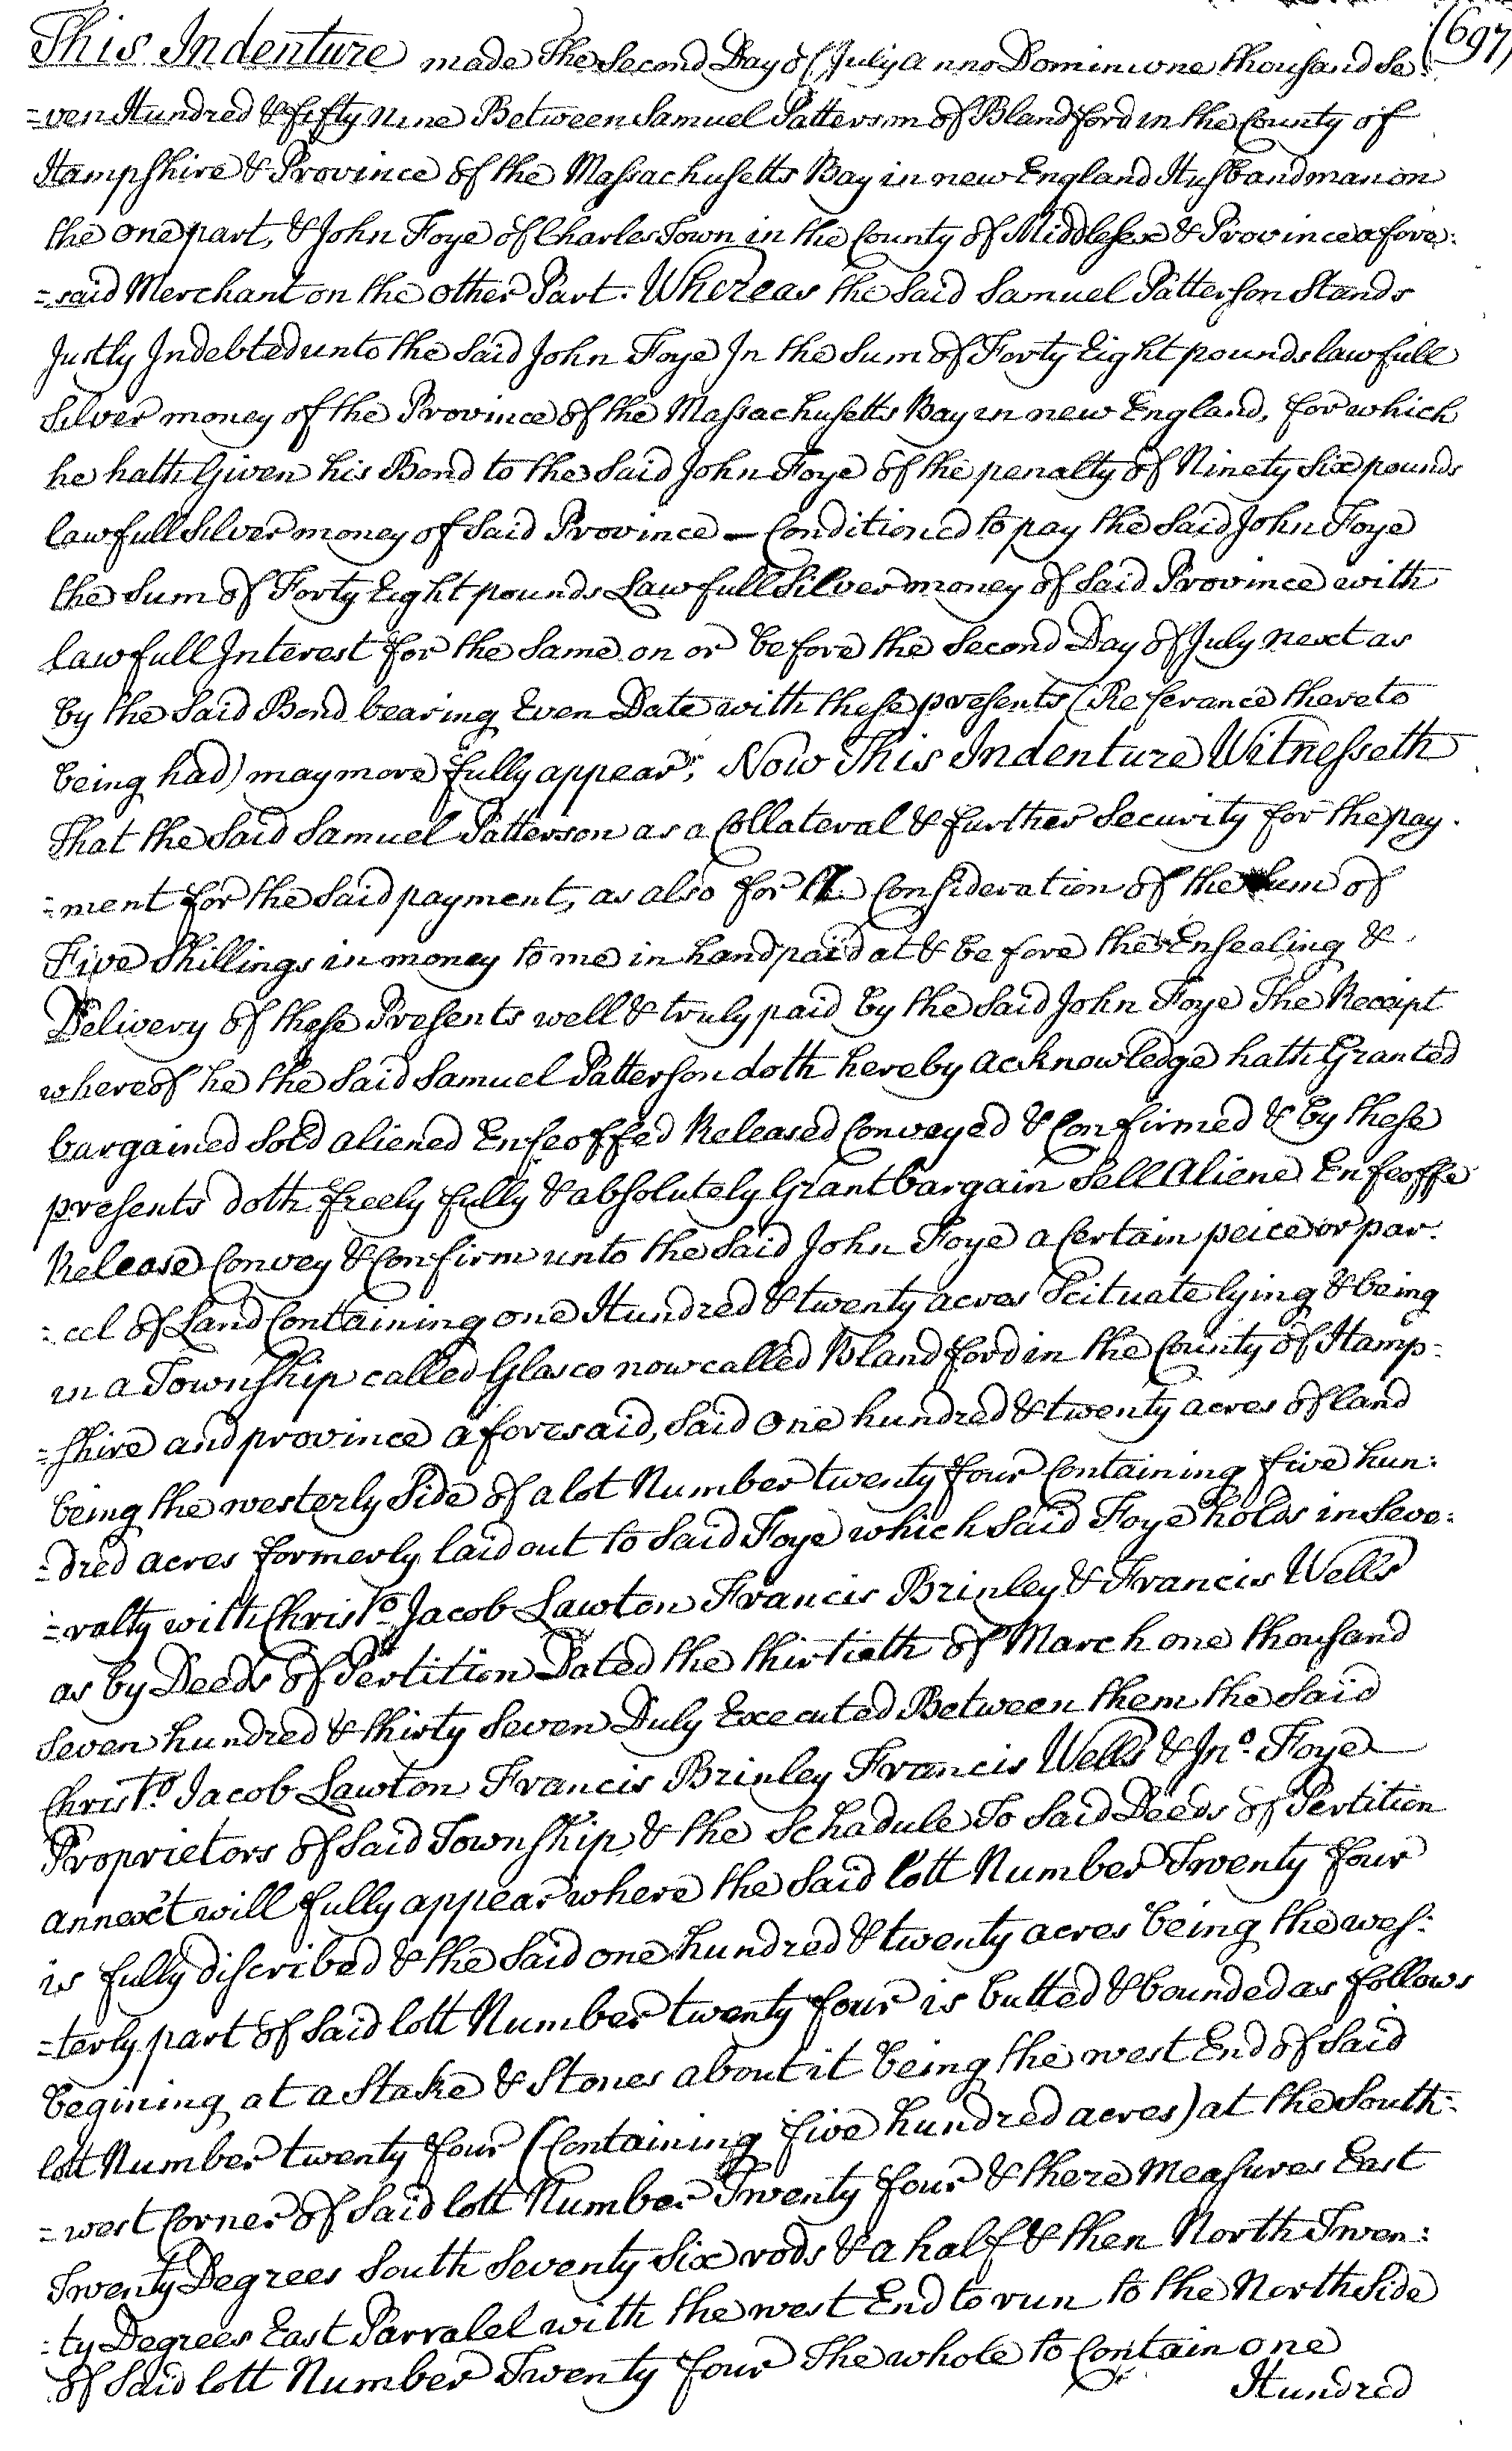 (697)
This Indenture made The Second Day of July anno Domini one thousand Se:
=ven Hundred & fifty nine Between Samuel Patterson of Blandford in the County of
Hampshire & Province of the Massachusetts Bay in new England Husbandman on
the one part, & John Foye of Charles Town in the County of Middlesex & Province afore:
=said Merchant on the other Part. Whereas the Said Samuel Patterson Stands
Justly Indebted unto the Said John Foye In the Sum of Forty Eight pounds lawfull
Silver money of the Province of the Massachusetts Bay in new England, for which
he hath Given his Bond to the Said John Foye of the penalty of Ninety Six pounds
lawfull Silver money of Said Province — Conditioned to pay the Said John Foye
the Sum of Forty Eight pounds Lawfull Silver money of Said Province with
lawfull Interest for the Same on or before the Second Day of July next as
by the Said Bond bearing Even Date with these presents (Referance thereto
being had) may more fully appear; Now This Indenture Witnesseth
That the Said Samuel Patterson as a Collateral & further Security for the pay.
=ment for the Said payment, as also for Consideration of the Sum of
Five Shillings in money to me in hand paid at & before the Ensealing &
Delivery of these Presents well & truly paid by the Said John Foye The Receipt
whereof he the Said Samuel Patterson doth hereby acknowledge hath Granted
bargained Sold aliened Enfeoffed Released Conveyed & Confirmed & by these
presents doth freely fully & absolutely Grant bargain Sell Aliene Enfeoffe
Release Convey & Confirm unto the Said John Foye a Certain peice or par:
=cel of Land Containing one Hundred & twenty acres Scituate lying & being
in a Township called Glasco now called Blandford in the County of Hamp=
=shire and province aforesaid, Said One hundred & twenty acres of land
being the westerly Side of a lot Number twenty four Containing five hun:
=dred acres formerly laid out to Said Foye which Said Foye holds in Seve:
=ralty with Christo. Jacob Lawton Francis Brinley & Francis Wells
as by Deeds of Pertition Dated the thirtieth of March one thousand
Seven hundred & thirty Seven Duly Executed Between them the Said
Christo. Jacob Lawton Francis Brinley Francis Wells & Jno. Foye
Proprietors of Said Township & the Schadule To Said Deeds of Pertition
annex't will fully appear where the Said lott Number Twenty four
is fully discribed & the Said one hundred & twenty acres being the wes:
=terly part of Said lott Number twenty four is butted & bounded as follows
begining at a Stake & Stones about it being the west End of Said
lott Number twenty four (Containing five hundred acres) at the South=
=west Corner of Said lott Number Twenty four & there Measures East
Twenty Degrees South Seventy Six rods & a half & then North Twen:
=ty Degrees East Parralel with the west End to run to the North Side
of Said lott Number Twenty four The whole to Contain one
Hundred